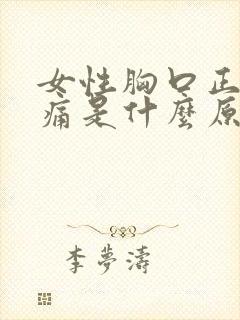 女性胸口正
痛是什麼原
李夢濤